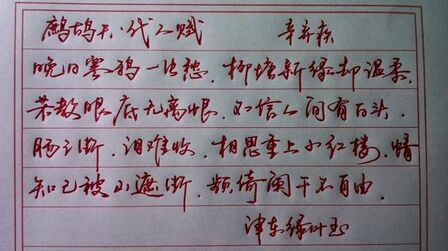 鹧鸪天·代人赋 辛弃疾
晚日寒鸦一片愁，柳塘新绿却温柔，
若教眼底无离恨，不信人间有白头，
肠已断，泪难收，相思重上小红楼，情
知已被山遮断，频倚阑干不自由。
津东绿叶